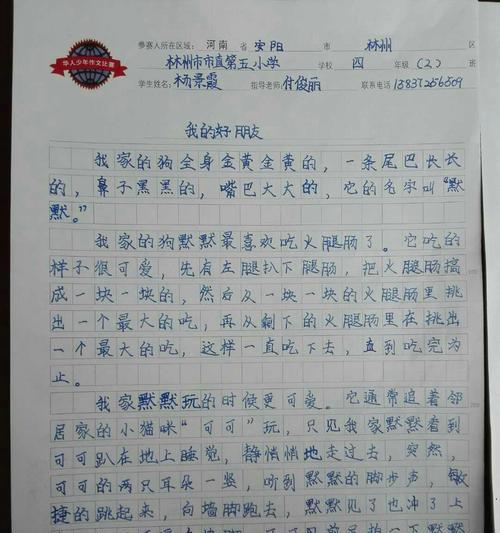 华人少年作文比赛
参赛人所在区域：河南 省 安阳 市 林州 区
林州市市直第五小学 学校 四 年级（2）班
学生姓名：杨景霞 指导老师：付俊丽 联系电话：13837265509
我的好朋友
我家的狗全身金黄金黄的，一条尾巴长长
的，鼻子黑黑的，嘴巴大大的，它的名字叫“默
默。”
我家的狗默默最喜欢吃火腿肠了。它吃的
样子很可爱，先有左腿扒下腿肠，把火腿肠搞
成一块一块的，然后从一块一块的火腿肠里挑
出一个最大的吃，再从剩下的火腿肠里在挑出
一个最大的吃，这样一直吃下去，直到吃完为
止。
我家默默玩的时候更可爱。它通常追着邻
居家的小猫咪“可可”玩，只见我家默默看到
可可趴在地上睡觉，静悄悄地走过去，突然，
可可的两只耳朵一竖，听到默默的脚步声，敏
捷的跳起来，向墙脚跑去，默默见了也冲了上